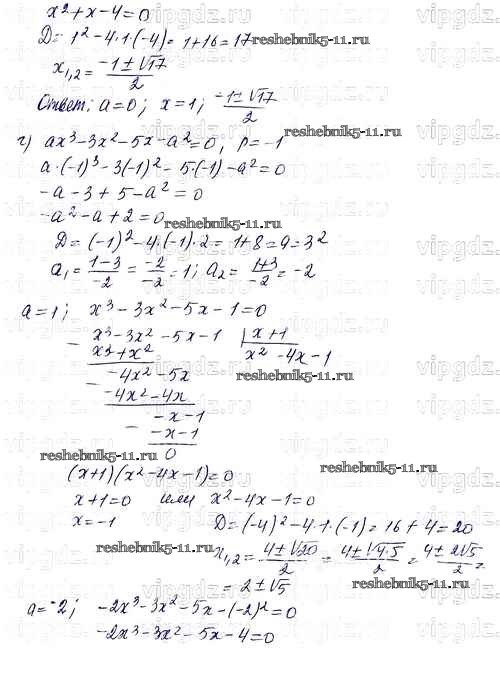 x² + x - 4 = 0
D = 1² - 4·1·(-4) = 1+16 = 17
reshebnik5-11.ru
x₁,₂ = (-1 ± √17)/2
Ответ: a=0; x=1; (-1±√17)/2
г) ax³ - 3x² - 5x - a² = 0, p = -1
reshebnik5-11.ru
a·(-1)³ - 3(-1)² - 5·(-1) - a² = 0
-a - 3 + 5 - a² = 0
-a² - a + 2 = 0
reshebnik5-11.ru
D = (-1)² - 4·(-1)·2 = 1+8 = 9 = 3²
a₁ = (1-3)/(-2) = (-2)/(-2) = 1; a₂ = (1+3)/(-2) = -2
a=1; x³ - 3x² - 5x - 1 = 0
- x³ - 3x² - 5x - 1 | x+1
x³ + x² x² - 4x - 1
- -4x² - 5x
reshebnik5-11.ru
-4x² - 4x
- -x - 1
-x - 1
0
reshebnik5-11.ru
(x+1)(x² - 4x - 1) = 0
reshebnik5-11.ru
x+1=0 или x² - 4x - 1 = 0
x = -1 D = (-4)² - 4·1·(-1) = 16 + 4 = 20
reshebnik5-11.ru
x₁,₂ = (4±√20)/2 = (4±√4·5)/2 = (4±2√5)/2 =
= 2±√5
reshebnik5-11.ru
a=-2; -2x³ - 3x² - 5x - (-2)² = 0
-2x³ - 3x² - 5x - 4 = 0
vipgdz.ru